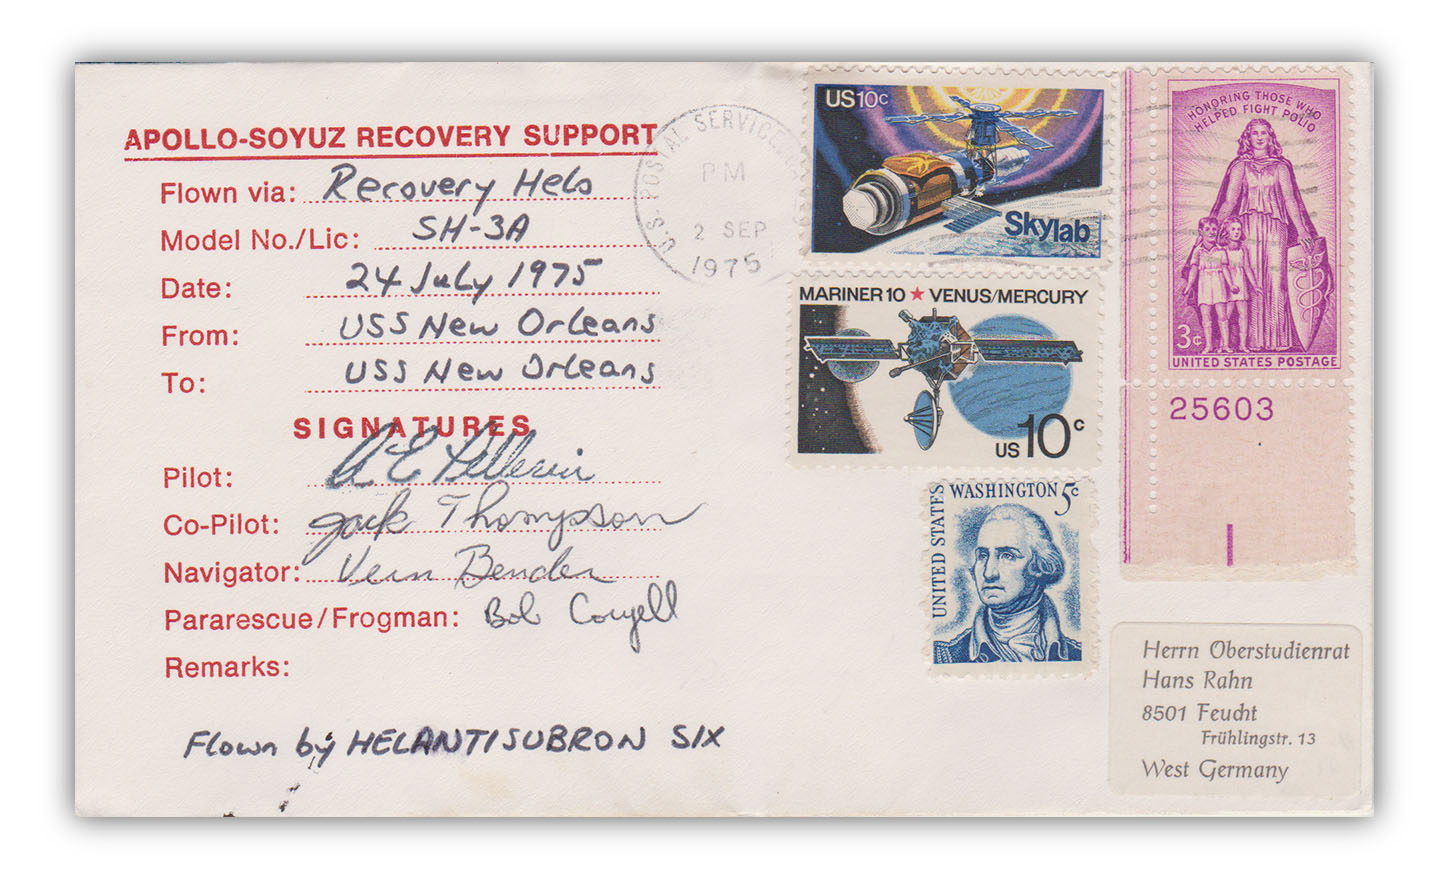 APOLLO-SOYUZ RECOVERY SUPPORT
Flown via: Recovery Helo
Model No./Lic: SH-3A
Date: 24 July 1975
From: USS New Orleans
To: USS New Orleans
SIGNATURES
Pilot: A E Pellerin
Co-Pilot: Jack Thompson
Navigator: Vern Bender
Pararescue/Frogman: Bob Coryell
Remarks:
Flown by HELANTISUBRON SIX
U.S. POSTAL SERVICE
PM
2 SEP
1975
US10c
Skylab
MARINER 10 ★ VENUS/MERCURY
US 10c
WASHINGTON 5c
UNITED STATES
HONORING THOSE WHO
HELPED FIGHT POLIO
3c
UNITED STATES POSTAGE
25603
Herrn Oberstudienrat
Hans Rahn
8501 Feucht
Frühlingstr. 13
West Germany